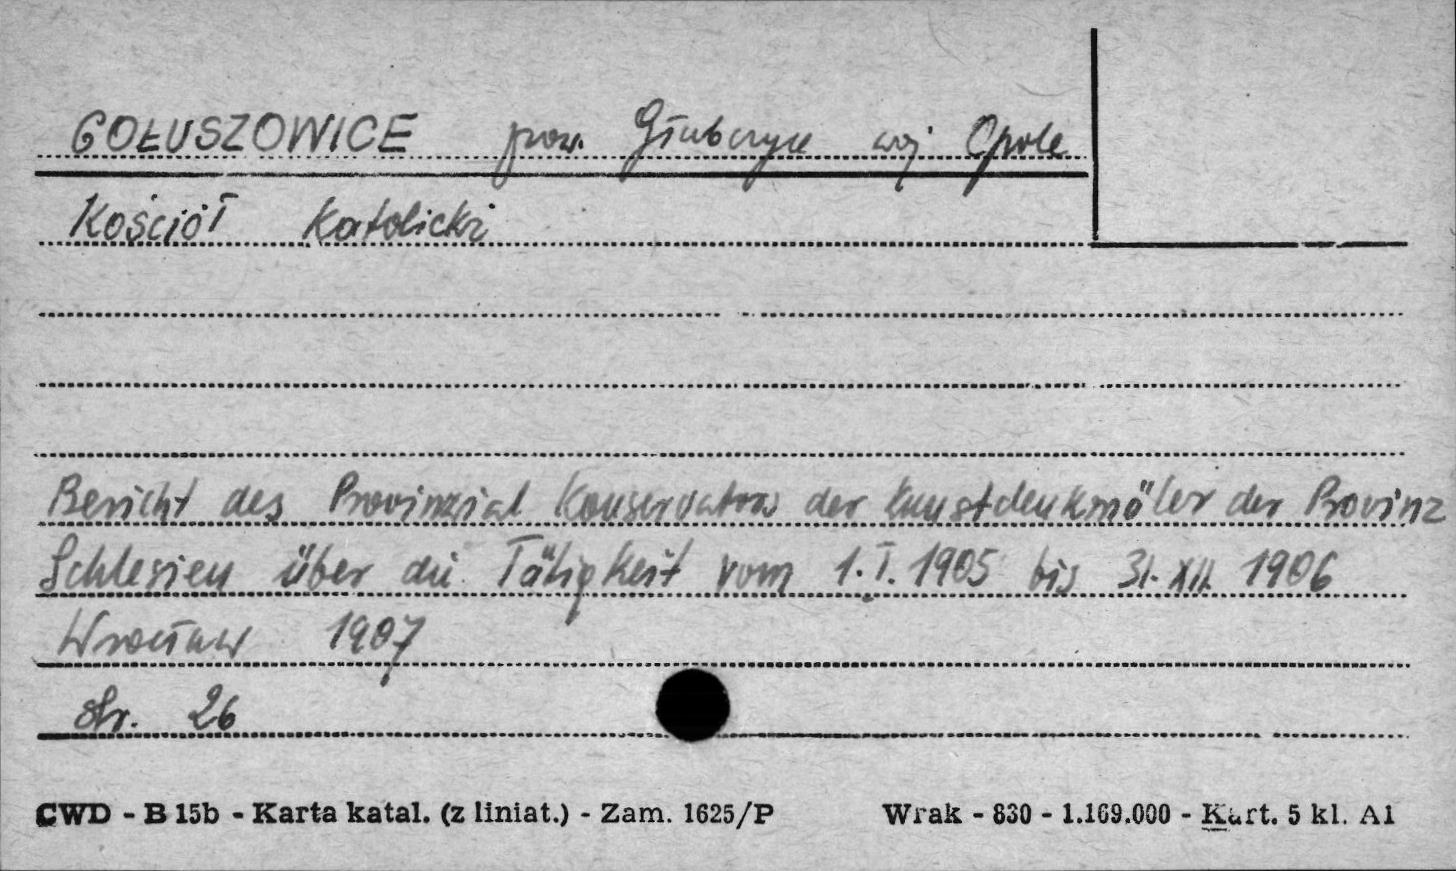 GOŁUSZOWICE pow. Głubczyce woj Opole
Kościół Katolicki
Bericht des Provinzial Konservators der Kunstdenkmäler der Provinz
Schlesien über die Tätigkeit vom 1.I.1905 bis 31.XII.1906
Wrocław 1907
str. 26
CWD - B 15b - Karta katal. (z liniat.) - Zam. 1625/P Wrak - 830 - 1.169.000 - Kart. 5 kl. A1